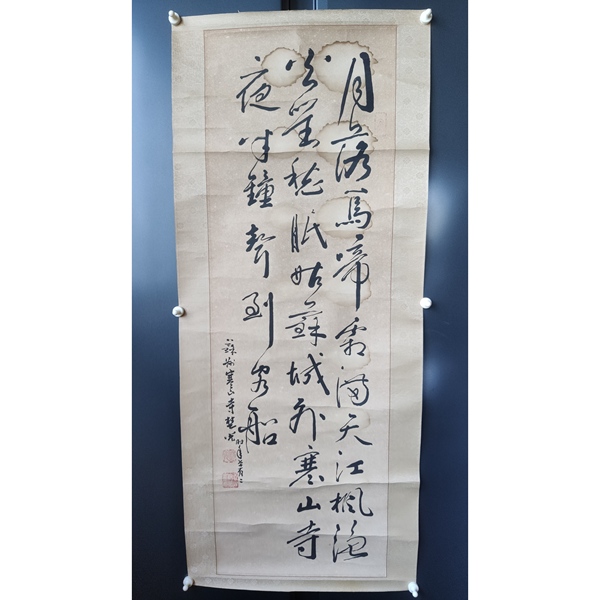 月落烏啼霜満天江楓漁
火對愁眠姑蘇城外寒山寺
夜半鐘聲到客船
蘇州寒山寺